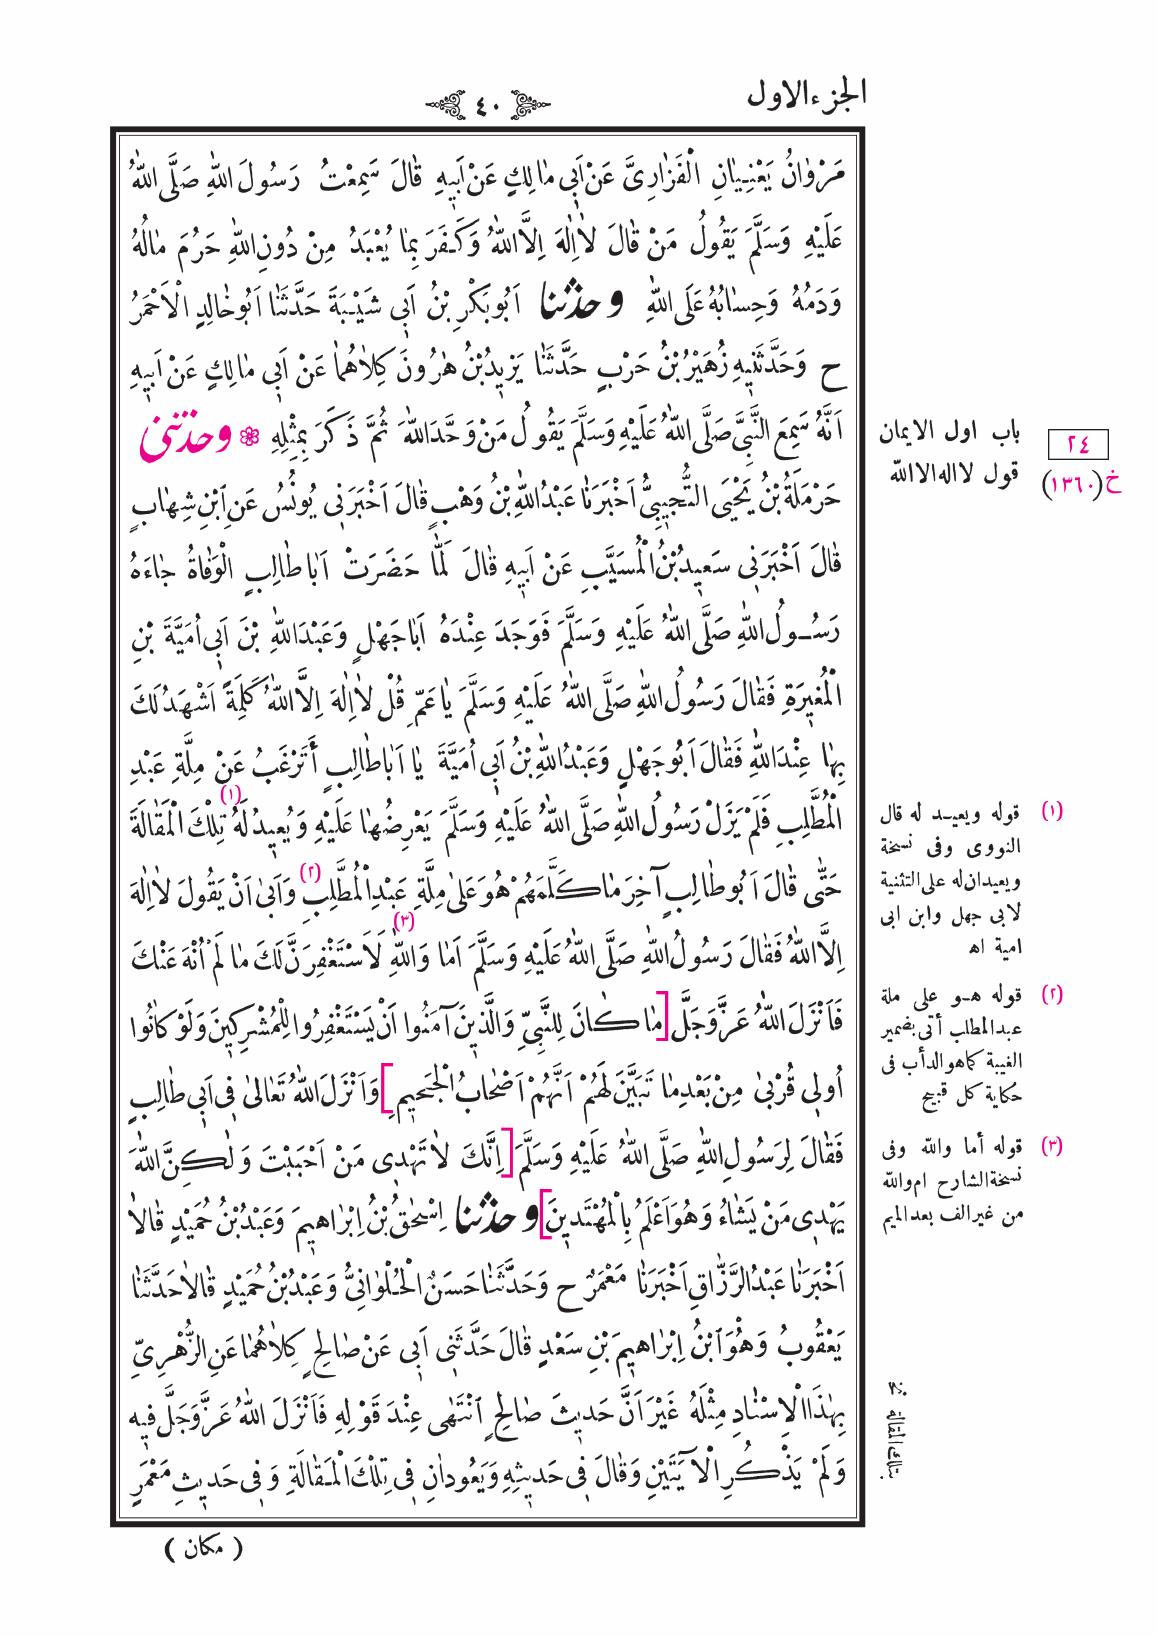 الجزء الاول
٤٠
مَرْوَانُ يَعْنِيَانِ الْفَزَارِيَّ عَنْ أَبِي مَالِكٍ عَنْ أَبِيهِ قَالَ سَمِعْتُ رَسُولَ اللّٰهِ صَلَّى اللّٰهُ
عَلَيْهِ وَسَلَّمَ يَقُولُ مَنْ قَالَ لَا اِلٰهَ اِلَّا اللّٰهُ وَكَفَرَ بِمَا يُعْبَدُ مِنْ دُونِ اللّٰهِ حَرُمَ مَالُهُ
وَدَمُهُ وَحِسَابُهُ عَلَى اللّٰهِ وحدثنا اَبُوبَكْرِ بْنُ اَبِي شَيْبَةَ حَدَّثَنَا اَبُوخَالِدٍ الْاَحْمَرُ
ح وَحَدَّثَنِيهِ زُهَيْرُ بْنُ حَرْبٍ حَدَّثَنَا يَزِيدُ بْنُ هٰرُونَ كِلَاهُمَا عَنْ اَبِي مَالِكٍ عَنْ اَبِيهِ
اَنَّهُ سَمِعَ النَّبِيَّ صَلَّى اللّٰهُ عَلَيْهِ وَسَلَّمَ يَقُولُ مَنْ وَحَّدَ اللّٰهَ ثُمَّ ذَكَرَ بِمِثْلِهِ ❁ وحدثنى
حَرْمَلَةُ بْنُ يَحْيَى التُّجِيبِيُّ اَخْبَرَنَا عَبْدُ اللّٰهِ بْنُ وَهْبٍ قَالَ اَخْبَرَنِي يُونُسُ عَنِ ابْنِ شِهَابٍ
قَالَ اَخْبَرَنِي سَعِيدُ بْنُ الْمُسَيَّبِ عَنْ اَبِيهِ قَالَ لَمَّا حَضَرَتْ اَبَا طَالِبٍ الْوَفَاةُ جَاءَهُ
رَسُولُ اللّٰهِ صَلَّى اللّٰهُ عَلَيْهِ وَسَلَّمَ فَوَجَدَ عِنْدَهُ اَبَا جَهْلٍ وَعَبْدَ اللّٰهِ بْنَ اَبِي اُمَيَّةَ بْنِ
الْمُغِيرَةِ فَقَالَ رَسُولُ اللّٰهِ صَلَّى اللّٰهُ عَلَيْهِ وَسَلَّمَ يَا عَمِّ قُلْ لَا اِلٰهَ اِلَّا اللّٰهُ كَلِمَةً اَشْهَدُ لَكَ
بِهَا عِنْدَ اللّٰهِ فَقَالَ اَبُو جَهْلٍ وَعَبْدُ اللّٰهِ بْنُ اَبِي اُمَيَّةَ يَا اَبَا طَالِبٍ أَتَرْغَبُ عَنْ مِلَّةِ عَبْدِ
الْمُطَّلِبِ فَلَمْ يَزَلْ رَسُولُ اللّٰهِ صَلَّى اللّٰهُ عَلَيْهِ وَسَلَّمَ يَعْرِضُهَا عَلَيْهِ وَيُعِيدُ لَهُ (١) تِلْكَ الْمَقَالَةَ
حَتّٰى قَالَ اَبُو طَالِبٍ آخِرَ مَا كَلَّمَهُمْ هُوَ عَلٰى مِلَّةِ عَبْدِ الْمُطَّلِبِ (٢) وَاَبٰى اَنْ يَقُولَ لَا اِلٰهَ
اِلَّا اللّٰهُ فَقَالَ رَسُولُ اللّٰهِ صَلَّى اللّٰهُ عَلَيْهِ وَسَلَّمَ اَمَا وَاللّٰهِ (٣) لَاَسْتَغْفِرَنَّ لَكَ مَا لَمْ اُنْهَ عَنْكَ
فَاَنْزَلَ اللّٰهُ عَزَّ وَجَلَّ [مَا كَانَ لِلنَّبِيِّ وَالَّذِينَ آمَنُوا اَنْ يَسْتَغْفِرُوا لِلْمُشْرِكِينَ وَلَوْ كَانُوا
اُولِي قُرْبٰى مِنْ بَعْدِ مَا تَبَيَّنَ لَهُمْ اَنَّهُمْ اَصْحَابُ الْجَحِيمِ] وَاَنْزَلَ اللّٰهُ تَعَالٰى فِي اَبِي طَالِبٍ
فَقَالَ لِرَسُولِ اللّٰهِ صَلَّى اللّٰهُ عَلَيْهِ وَسَلَّمَ [اِنَّكَ لَا تَهْدِي مَنْ اَحْبَبْتَ وَلٰكِنَّ اللّٰهَ
يَهْدِي مَنْ يَشَاءُ وَهُوَ اَعْلَمُ بِالْمُهْتَدِينَ] وحدثنا اِسْحٰقُ بْنُ اِبْرَاهِيمَ وَعَبْدُ بْنُ حُمَيْدٍ قَالَا
اَخْبَرَنَا عَبْدُ الرَّزَّاقِ اَخْبَرَنَا مَعْمَرٌ ح وَحَدَّثَنَا حَسَنٌ الْحُلْوَانِيُّ وَعَبْدُ بْنُ حُمَيْدٍ قَالَا حَدَّثَنَا
يَعْقُوبُ وَهُوَ ابْنُ اِبْرَاهِيمَ بْنِ سَعْدٍ قَالَ حَدَّثَنِي اَبِي عَنْ صَالِحٍ كِلَاهُمَا عَنِ الزُّهْرِيِّ
بِهٰذَا الْاِسْنَادِ مِثْلَهُ غَيْرَ اَنَّ حَدِيثَ صَالِحٍ انْتَهٰى عِنْدَ قَوْلِهِ فَاَنْزَلَ اللّٰهُ عَزَّ وَجَلَّ فِيهِ
وَلَمْ يَذْكُرِ الْآيَتَيْنِ وَقَالَ فِي حَدِيثِهِ وَيَعُودَانِ فِي تِلْكَ الْمَقَالَةِ وَفِي حَدِيثِ مَعْمَرٍ
( مكان )
باب اول الايمان
قول لا اله الا الله
٢٤
خ (١٣٦٠)
(١) قوله ويعيد له قال
النووى وفى نسخة
ويعيدان له على التثنية
لابى جهل وابن ابى
امية اه
(٢) قوله هو على ملة
عبد المطلب أتى بضمير
الغيبة كما هو الدأب فى
حكاية كل قبيح
(٣) قوله أما والله وفى
نسخة الشارح ام والله
من غير الف بعد الميم
بتلك المقالة نخ